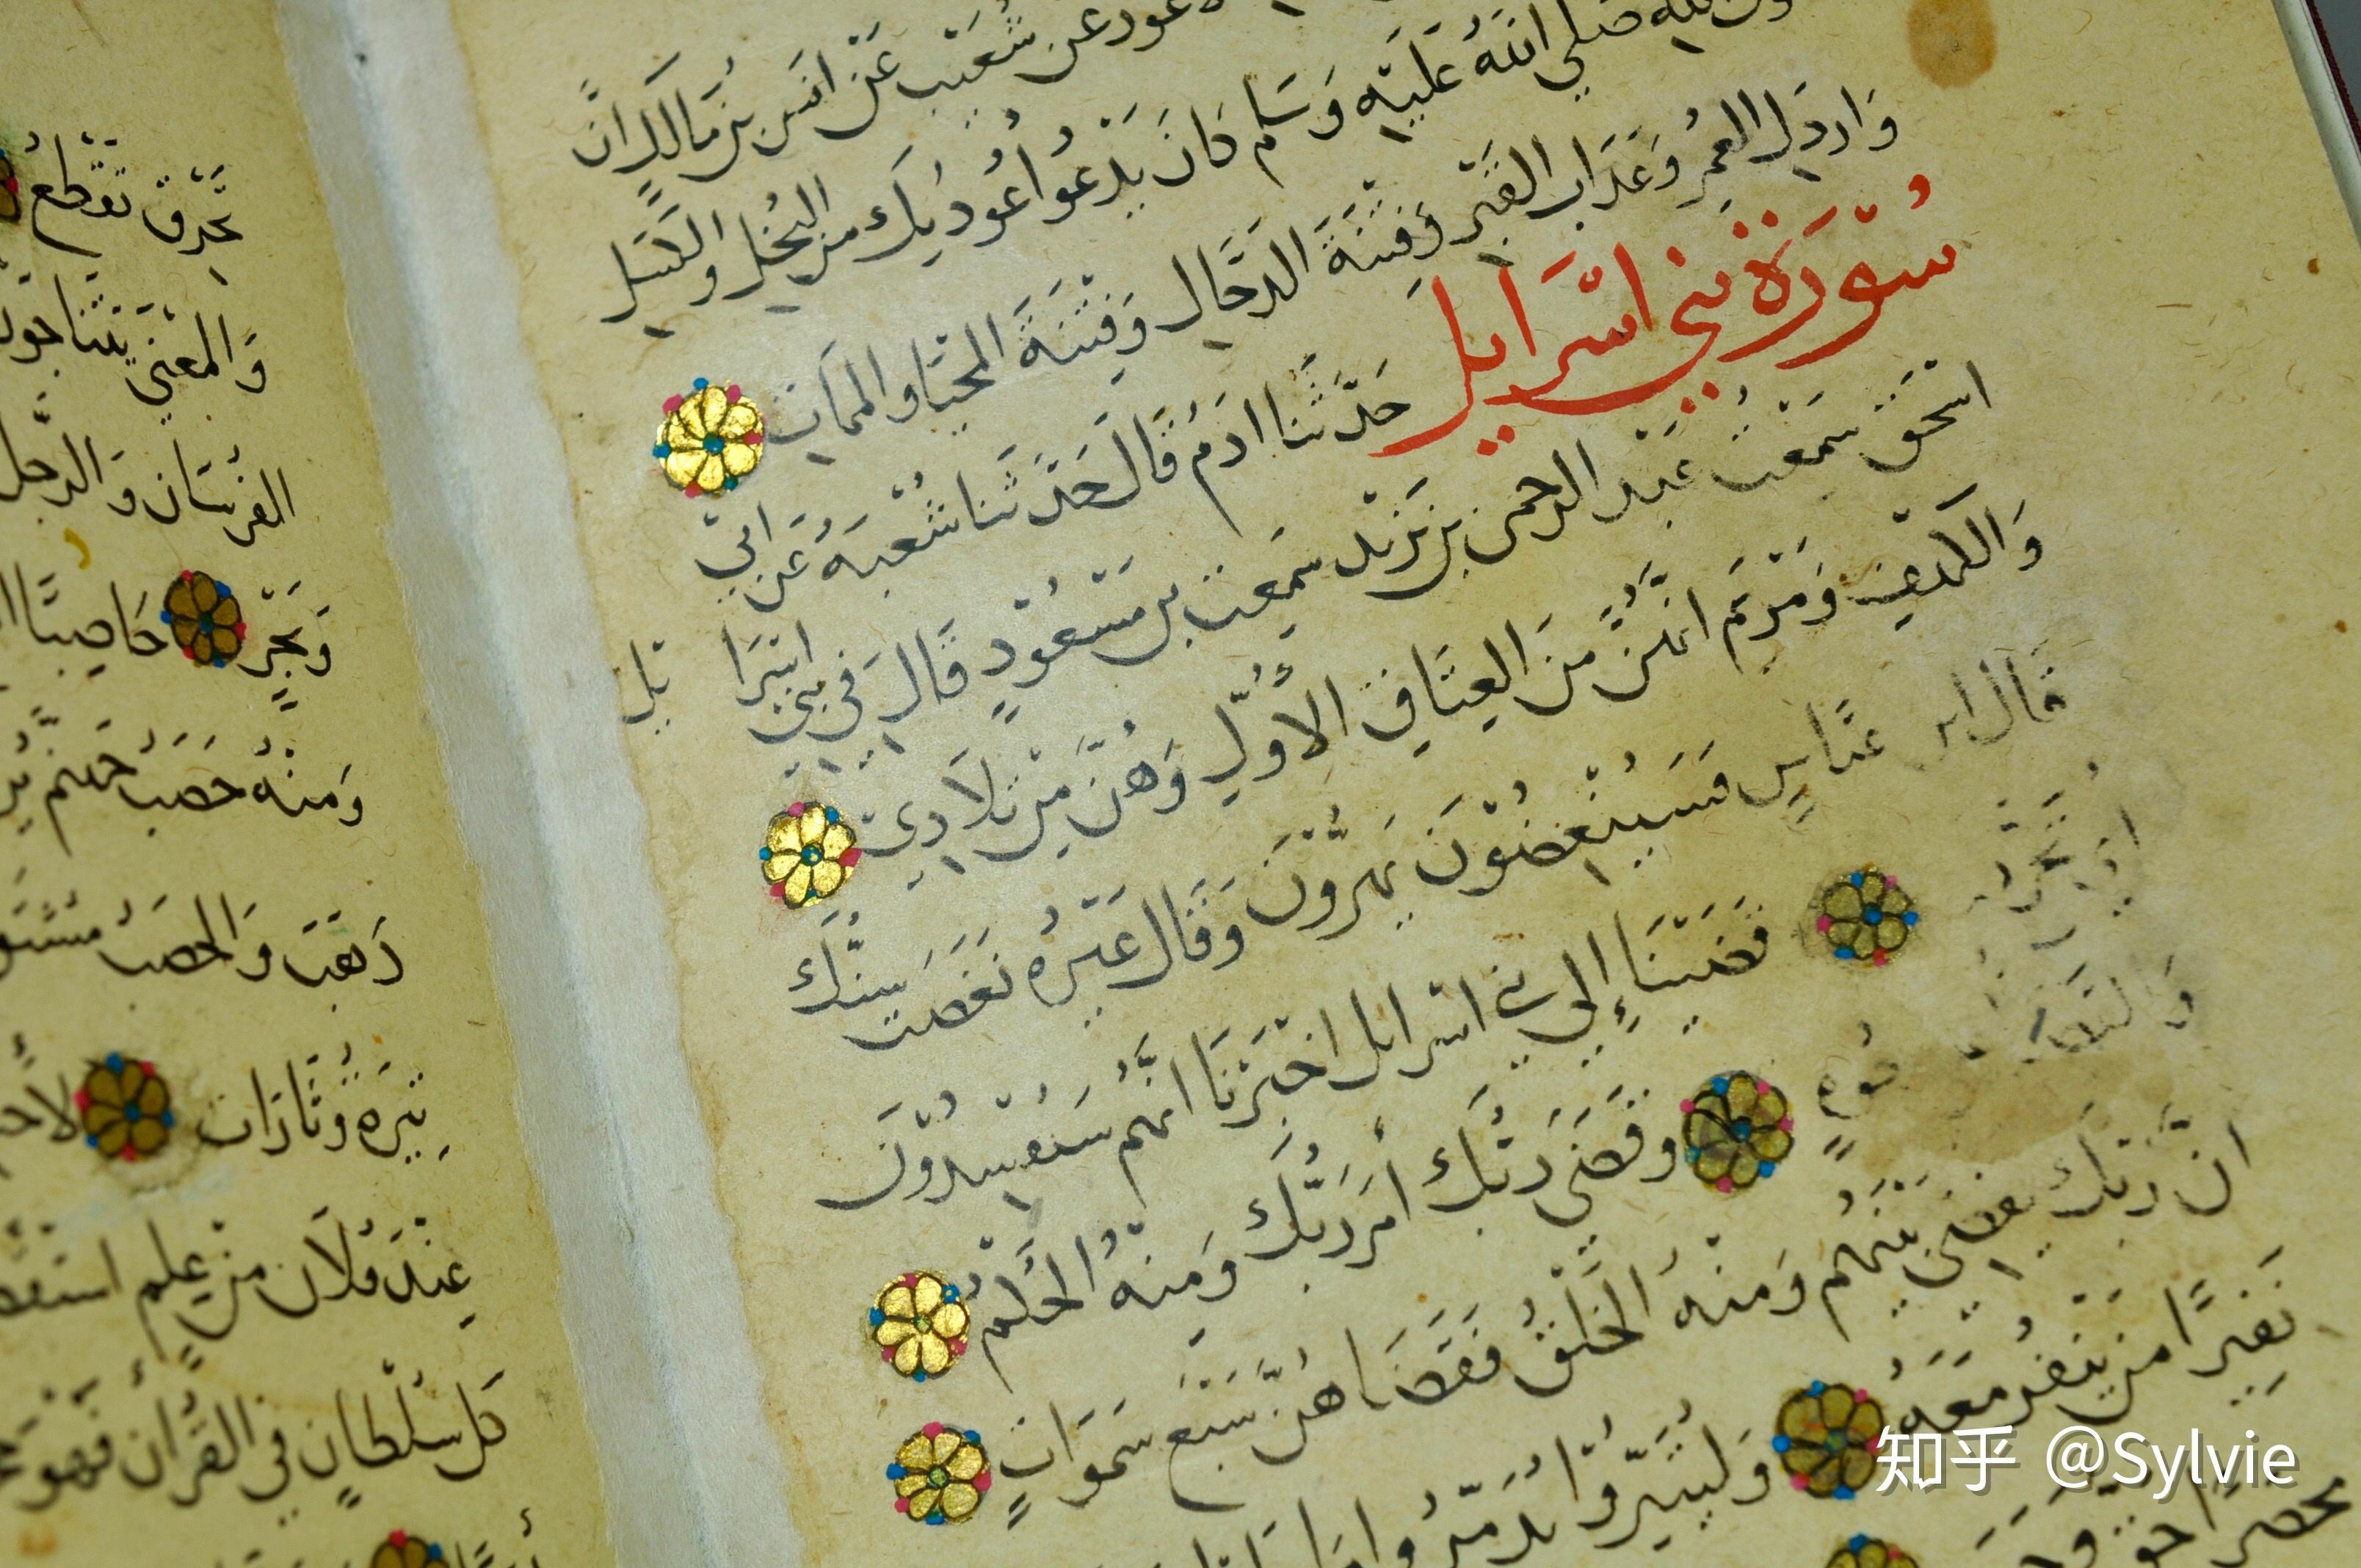 عن شعيب عن انس بن مالك ان
الله صلي الله عليه وسلم كان يدعوا اعوذ بك من البخل والكسل
واردل العمر وعذاب القبر وفتنة الدجال وفتنة المحيا والممات
سورة بني اسرايل حدثنا ادم قال حدثنا شعبة عن ابي
اسحق سمعت عبد الرحمن بن يزيد سمعت بن مسعود قال في بني اسرا يل
والكهف ومريم انهن من العتاق الاول وهن من تلادي
قال ابن عباس فسينغضون يهزون وقال غيره نغضت سنك
قضينا إلي بني اسرايل اخبرنا انهم سيفسدون
وقضي ربك أمر ربك ومنه الحكم
ان ربك يقضي بينهم ومنه الخلق فقضاهن سبع سموات
نفيرا من ينفر معه وليتبروا يدمروا
محصرا حق
تخرق تقطع
والمعني يتناجون
الفرسان والرجل
وتجر حاصبا
ومنه حصب جهنم
ذهب والحصب
تيرة وتارات
عند فلان من علم
كل سلطان في القران فهو
知乎 @Sylvie